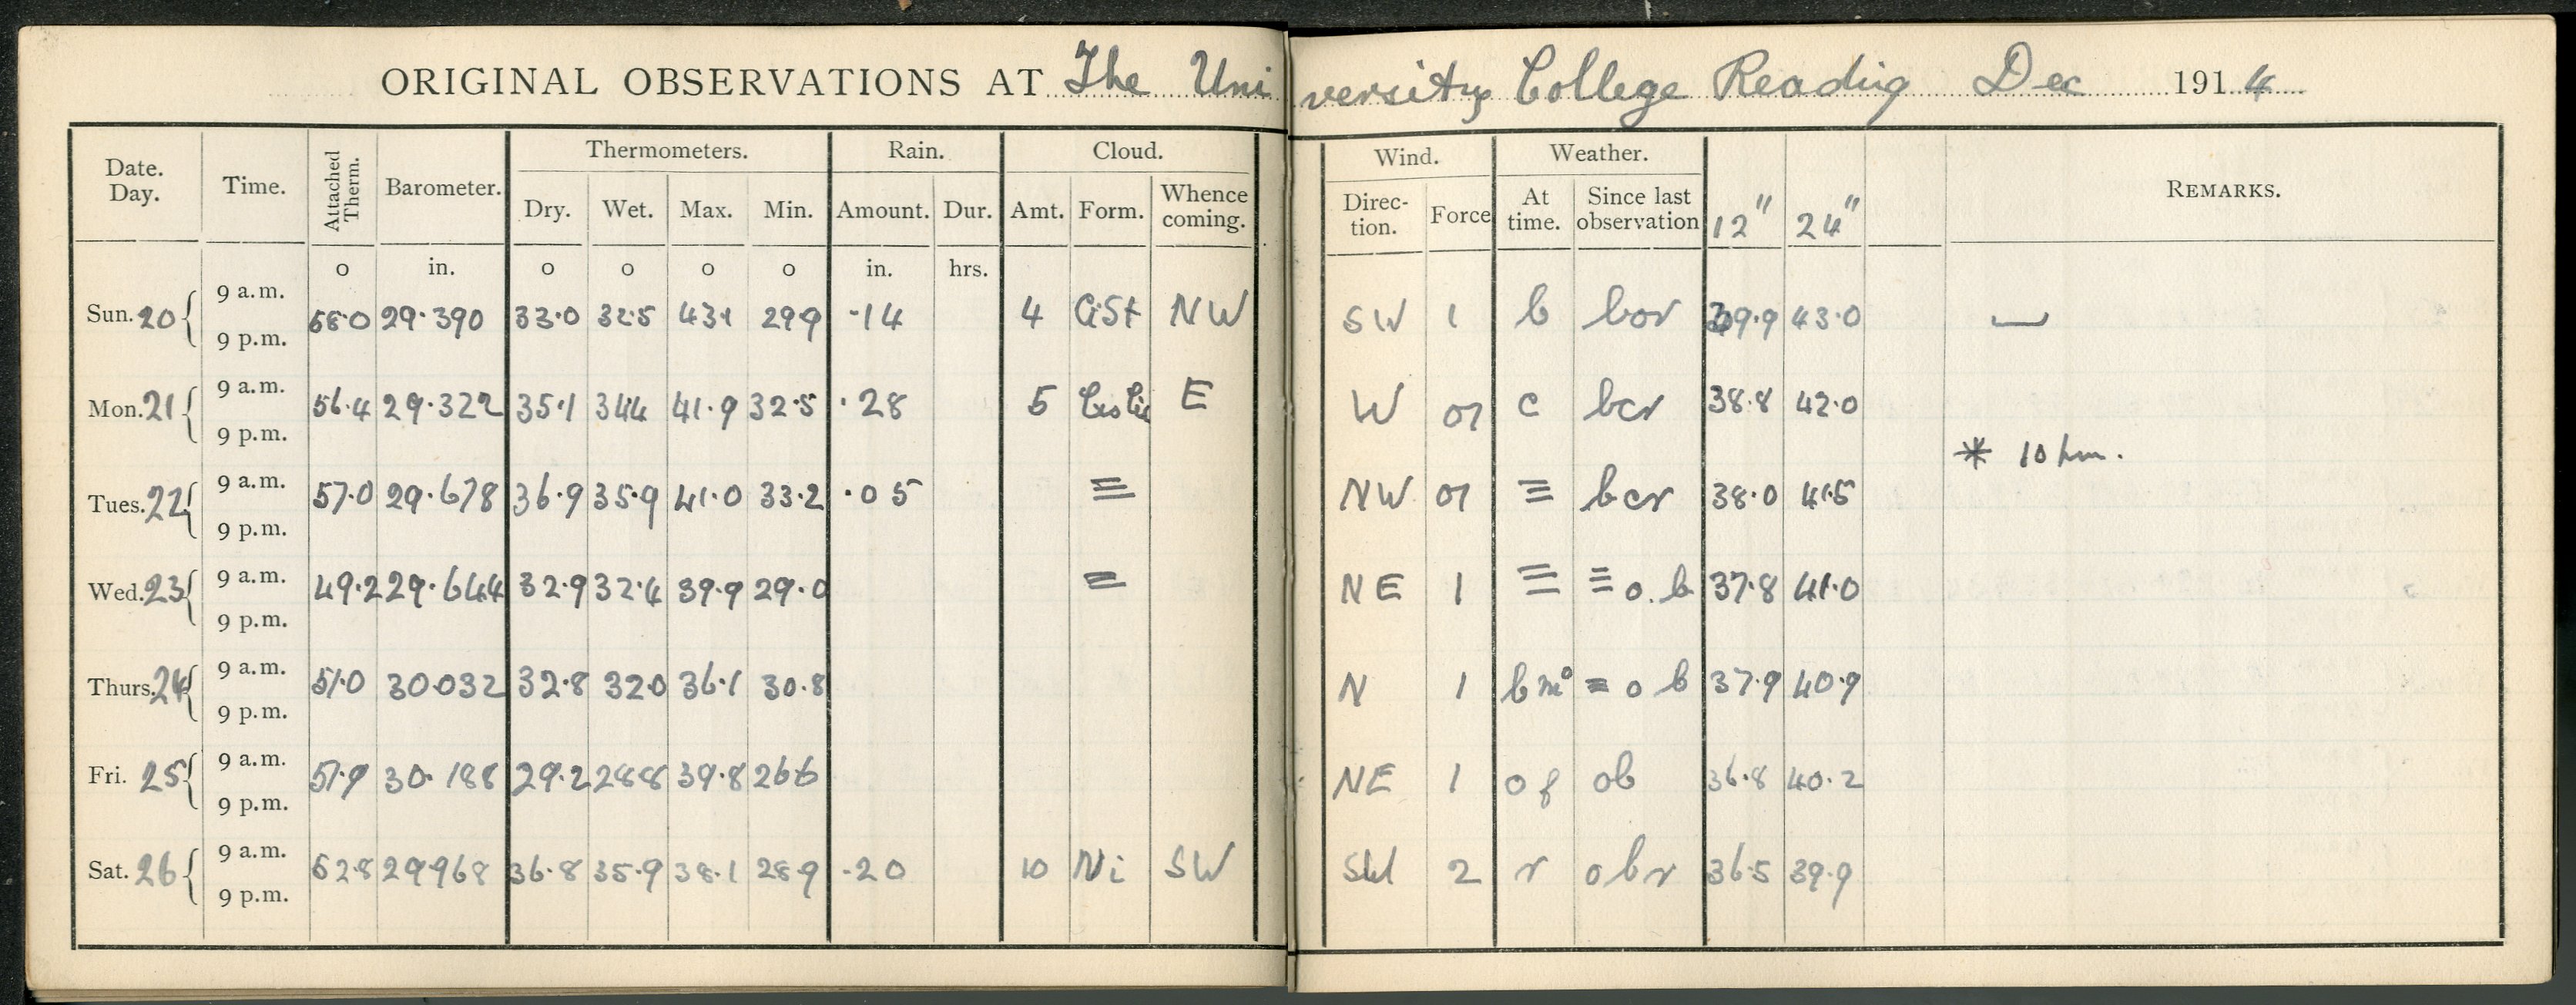 ORIGINAL OBSERVATIONS AT The University College Reading Dec 1914
Date. Day. Time. Attached Therm. Barometer. Thermometers. Dry. Wet. Max. Min. Rain. Amount. Dur. Cloud. Amt. Form. Whence coming. Wind. Direction. Force Weather. At time. Since last observation 12" 24" REMARKS.
o in. o o o o in. hrs.
Sun. 20 { 9 a.m. 9 p.m. 58.0 29.390 33.0 32.5 43.1 29.9 .14 4 CiSt NW SW 1 b bor 39.9 43.0 ⌴
Mon. 21 { 9 a.m. 9 p.m. 56.4 29.322 35.1 34.4 41.9 32.5 .28 5 E W 01 c bcr 38.8 42.0
* 10 pm.
Tues. 22 { 9 a.m. 9 p.m. 57.0 29.678 36.9 35.9 41.0 33.2 .05 ≡ NW 01 ≡ bcr 38.0 41.5
Wed. 23 { 9 a.m. 9 p.m. 49.2 29.644 32.9 32.4 39.9 29.0 ≡ NE 1 ≡ ≡ o. b 37.8 41.0
Thurs. 24 { 9 a.m. 9 p.m. 51.0 30.032 32.8 32.0 36.1 30.8 N 1 bm° ≡ o b 37.9 40.9
Fri. 25 { 9 a.m. 9 p.m. 51.9 30.188 29.2 28.8 39.8 26.6 NE 1 of ob 36.8 40.2
Sat. 26 { 9 a.m. 9 p.m. 52.8 29.968 36.8 35.9 38.1 28.9 .20 10 Ni SW SW 2 r obr 36.5 39.9